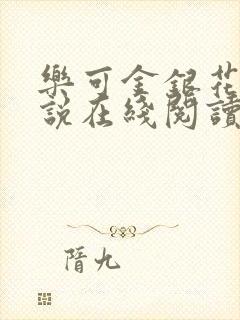 樂可金銀花
說在綫閱讀
隋九